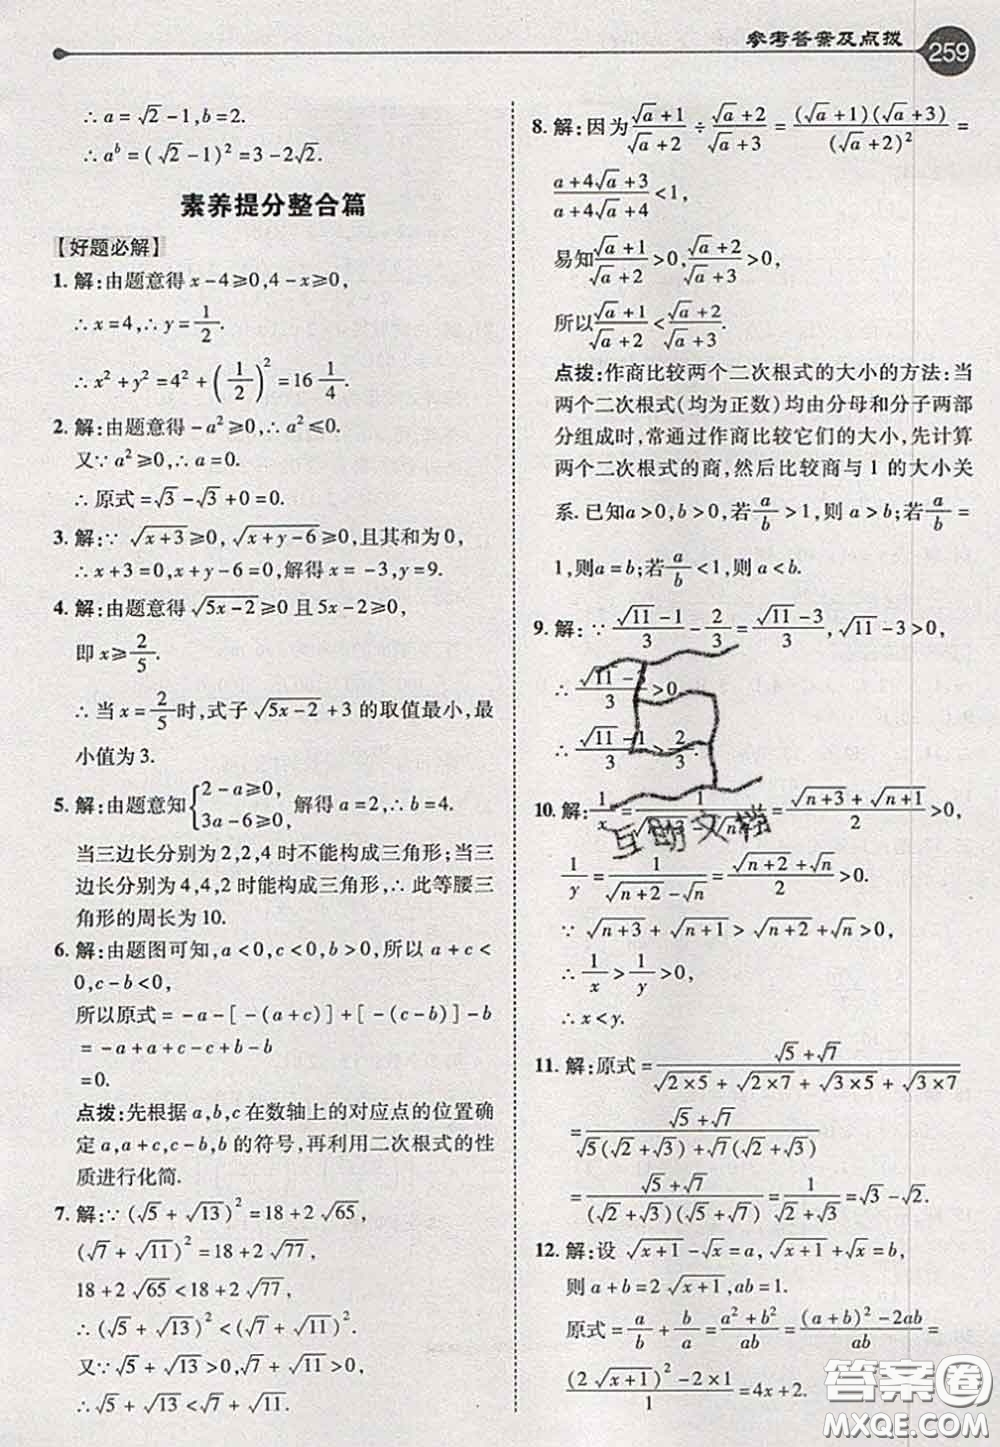 参考答案及点拨 259
∴a=√2-1,b=2.
∴a^b=(√2-1)²=3-2√2.
素养提分整合篇
【好题必解】
1. 解:由题意得 x-4≥0,4-x≥0,
∴x=4,∴y=1/2.
∴x²+y²=4²+(1/2)²=16 1/4.
2. 解:由题意得-a²≥0,∴a²≤0.
又∵a²≥0,∴a=0.
∴原式=√3-√3+0=0.
3. 解:∵√(x+3)≥0,√(x+y-6)≥0,且其和为0,
∴x+3=0,x+y-6=0,解得x=-3,y=9.
4. 解:由题意得√(5x-2)≥0且5x-2≥0,
即x≥2/5.
∴当x=2/5时,式子√(5x-2)+3的取值最小,最
小值为3.
5. 解:由题意知{2-a≥0, 3a-6≥0, 解得a=2,∴b=4.
当三边长分别为2,2,4时不能构成三角形;当三
边长分别为4,4,2时能构成三角形,∴此等腰三
角形的周长为10.
6. 解:由题图可知,a<0,c<0,b>0,所以a+c<
0,c-b<0,
所以原式=-a-[-(a+c)]+[-(c-b)]-b
=-a+a+c-c+b-b
=0.
点拨:先根据a,b,c在数轴上的对应点的位置确
定a,a+c,c-b,b的符号,再利用二次根式的性
质进行化简.
7. 解:∵(√5+√13)²=18+2√65,
(√7+√11)²=18+2√77,
18+2√65<18+2√77,
∴(√5+√13)²<(√7+√11)².
又∵√5+√13>0,√7+√11>0,
∴√5+√13<√7+√11.
8. 解:因为(√a+1)/(√a+2)÷(√a+2)/(√a+3)=(√a+1)(√a+3)/(√a+2)²=
(a+4√a+3)/(a+4√a+4)<1,
易知(√a+1)/(√a+2)>0,(√a+2)/(√a+3)>0,
所以(√a+1)/(√a+2)<(√a+2)/(√a+3).
点拨:作商比较两个二次根式的大小的方法:当
两个二次根式(均为正数)均由分母和分子两部
分组成时,常通过作商比较它们的大小,先计算
两个二次根式的商,然后比较商与1的大小关
系.已知a>0,b>0,若a/b>1,则a>b;若a/b=
1,则a=b;若a/b<1,则a<b.
9. 解:∵(√11-1)/3-2/3=(√11-3)/3,√11-3>0,
∴(√11-3)/3>0.
∴(√11-1)/3>2/3.
10. 解:1/x=1/(√(n+3)-√(n+1))=(√(n+3)+√(n+1))/2>0,
1/y=1/(√(n+2)-√n)=(√(n+2)+√n)/2>0.
∵√(n+3)+√(n+1)>√(n+2)+√n>0,
∴1/x>1/y>0,
∴x<y.
11. 解:原式=(√5+√7)/(√(2×5)+√(2×7)+√(3×5)+√(3×7))
=(√5+√7)/(√5(√2+√3)+√7(√2+√3))
=(√5+√7)/((√2+√3)(√5+√7))=1/(√2+√3)=√3-√2.
12. 解:设√(x+1)-√x=a,√(x+1)+√x=b,
则a+b=2√(x+1),ab=1.
原式=a/b+b/a=(a²+b²)/ab=((a+b)²-2ab)/ab=
((2√(x+1))²-2×1)/1=4x+2.
互助文档
答案圈
MXQE.COM